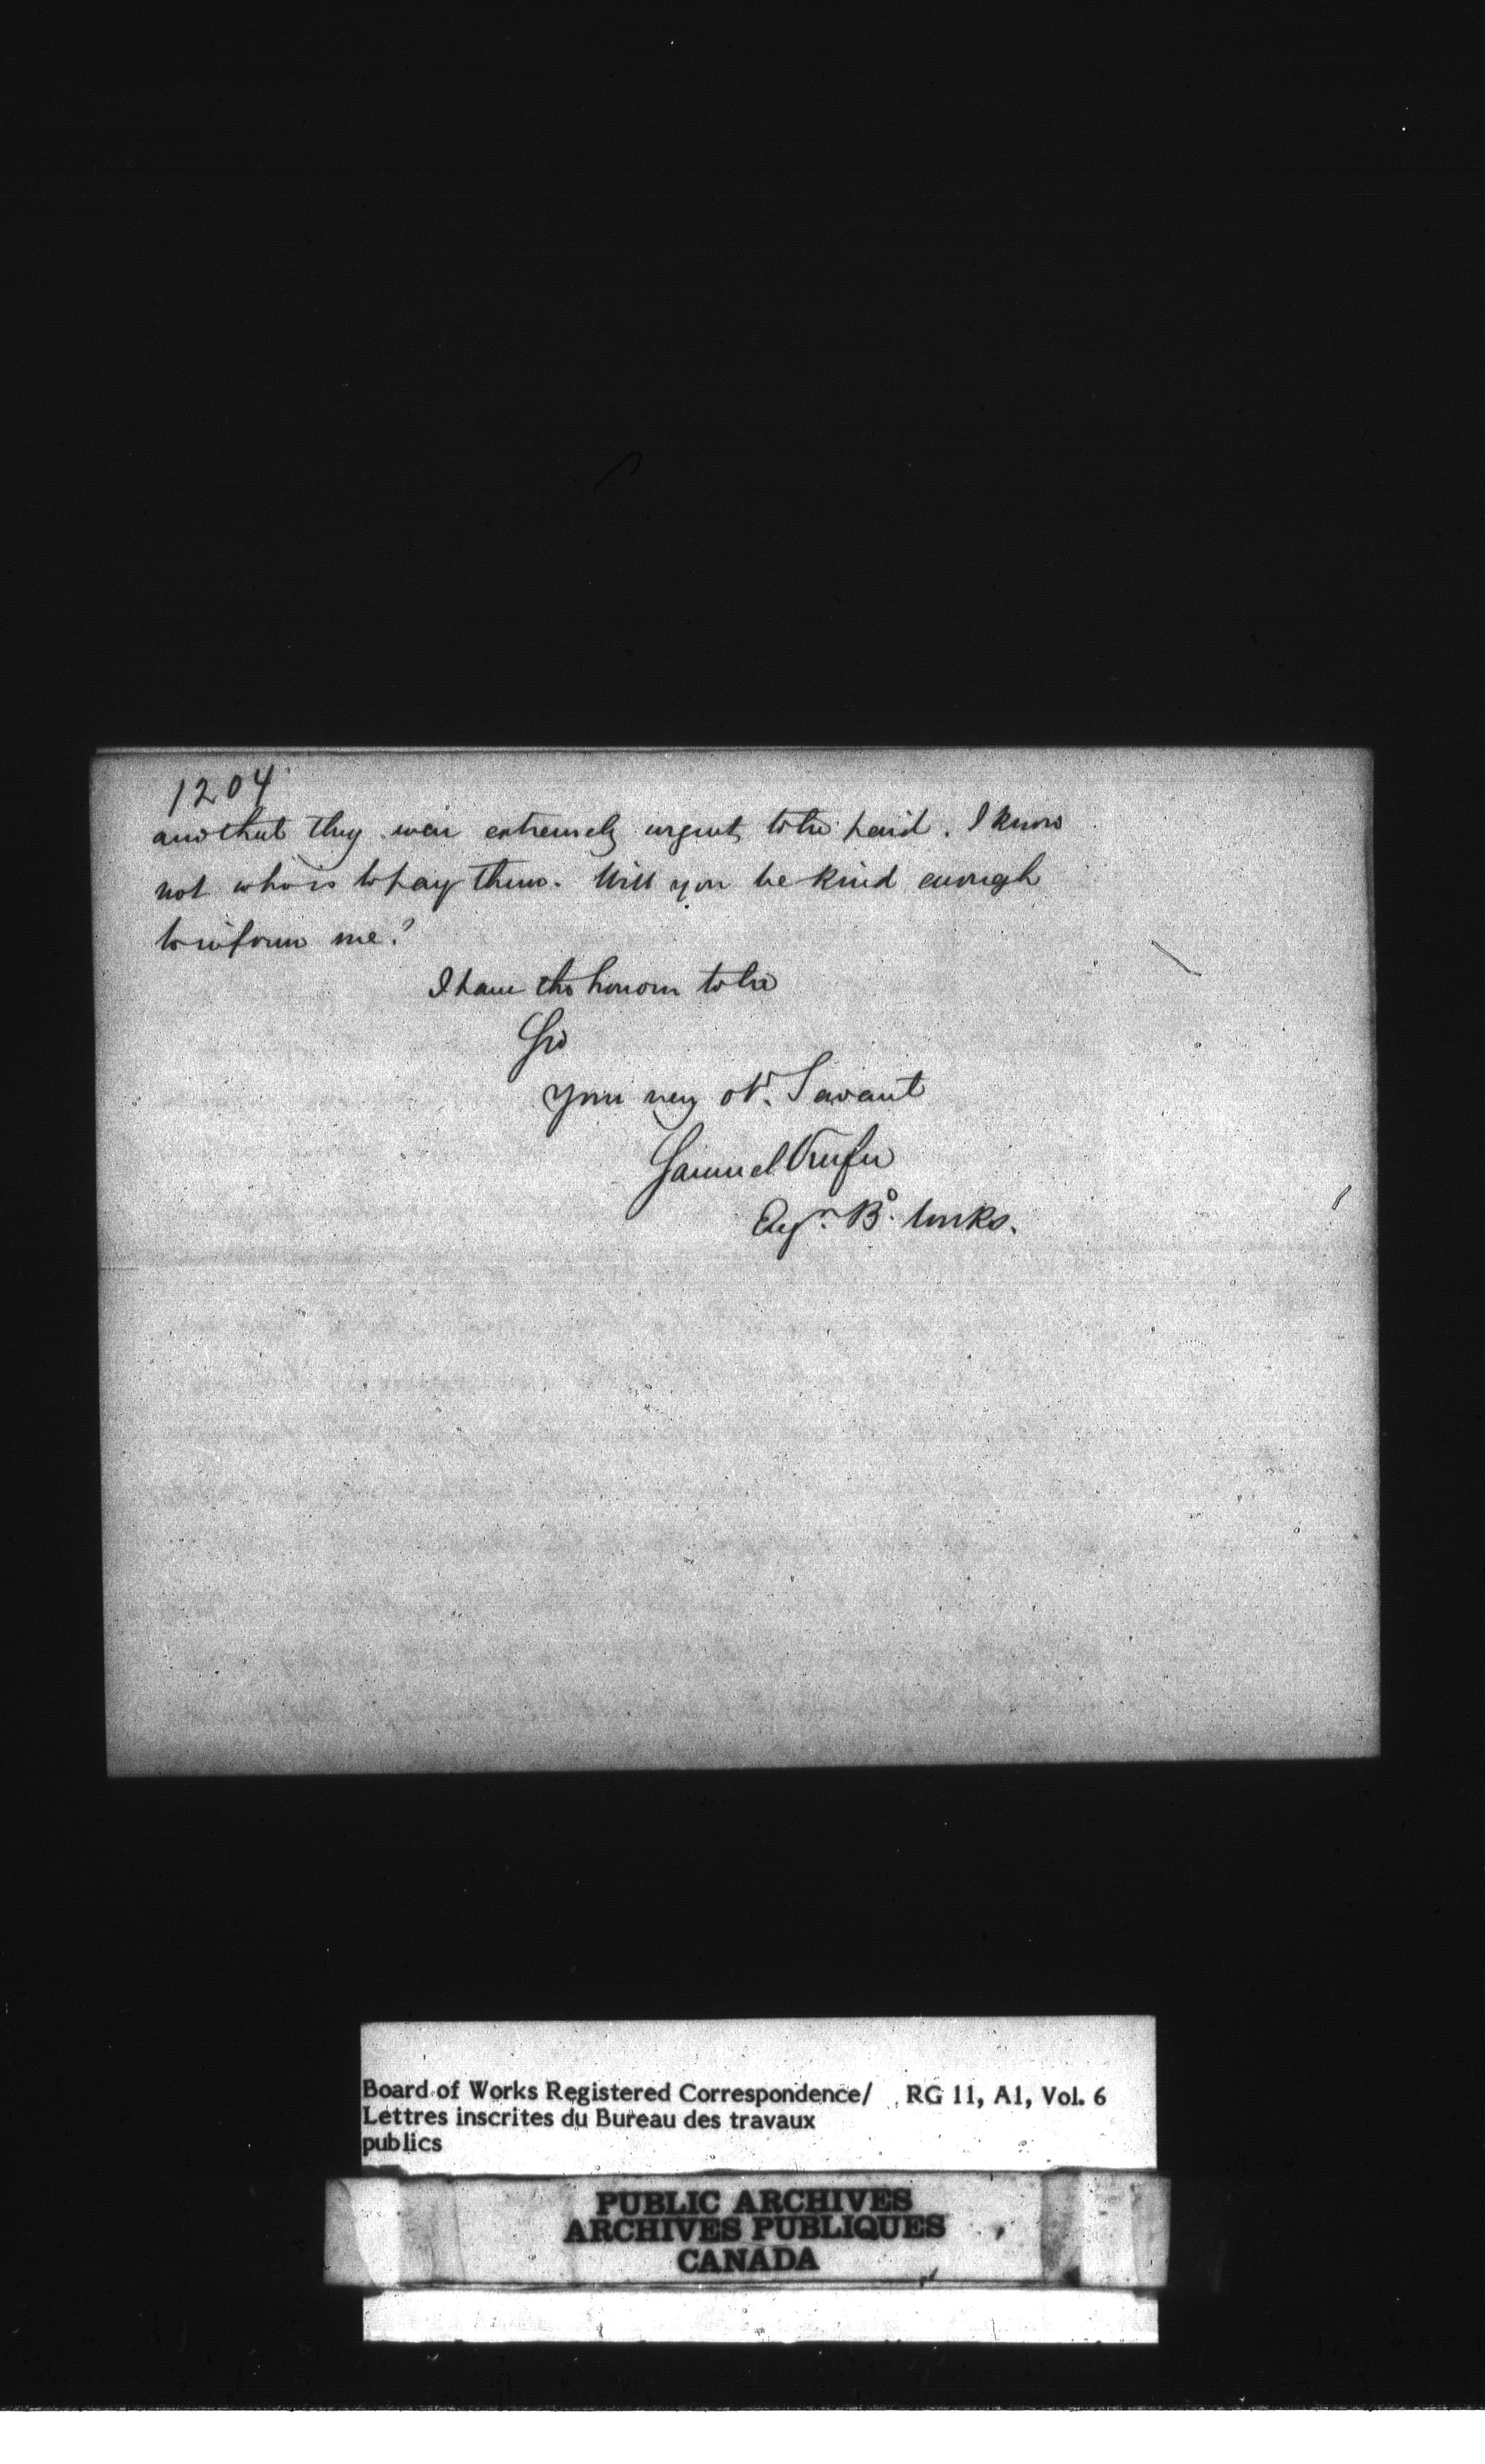 1204
and that they were extremely urgent to be paid. I know
not who is to pay them. Will you be kind enough
to inform me?
I have the honour to be
Sir
Your very obt. Servant
Samuel Keefer
Engr. Bd. Works.
Board of Works Registered Correspondence/ RG 11, A1, Vol. 6
Lettres inscrites du Bureau des travaux
publics
PUBLIC ARCHIVES
ARCHIVES PUBLIQUES
CANADA